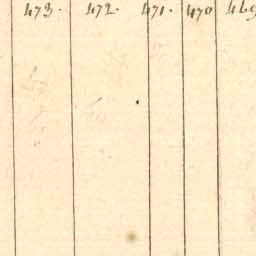 473. 472. 471. 470 469